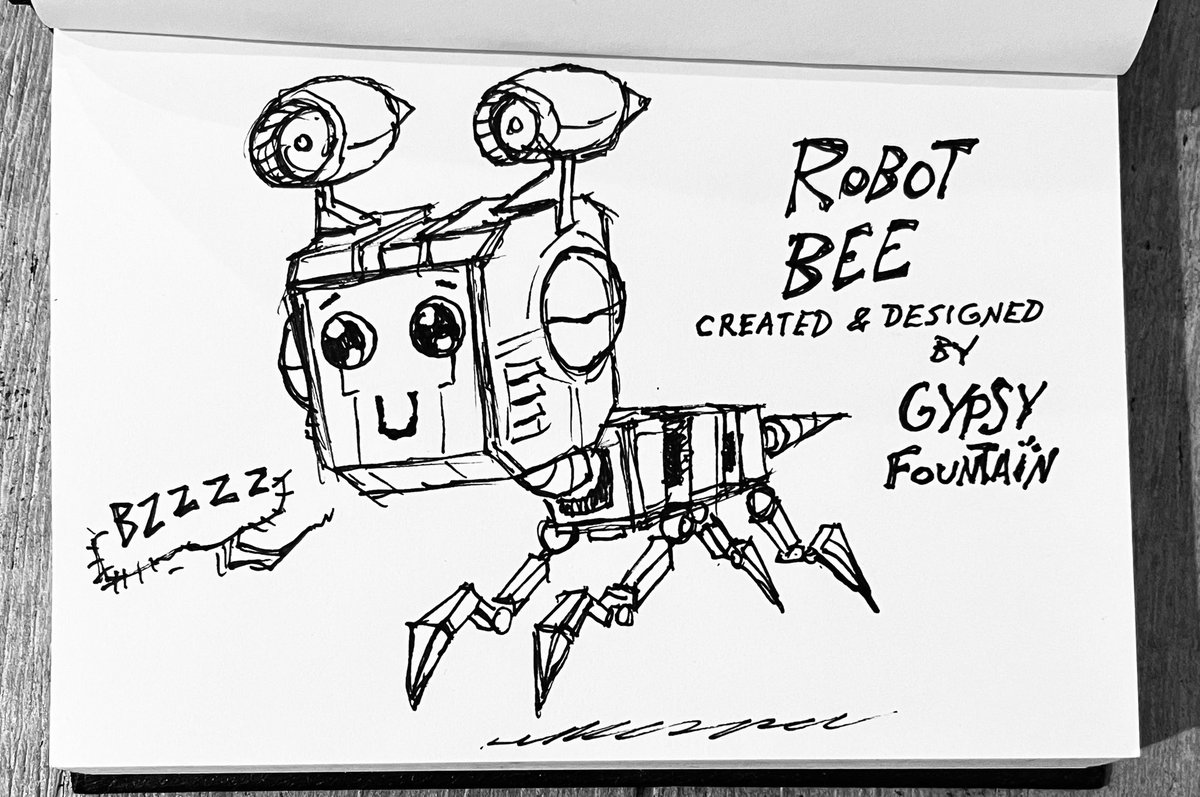 ROBOT
BEE
CREATED & DESIGNED
BY
GYPSY
FOUNTAIN
BZZZZZ